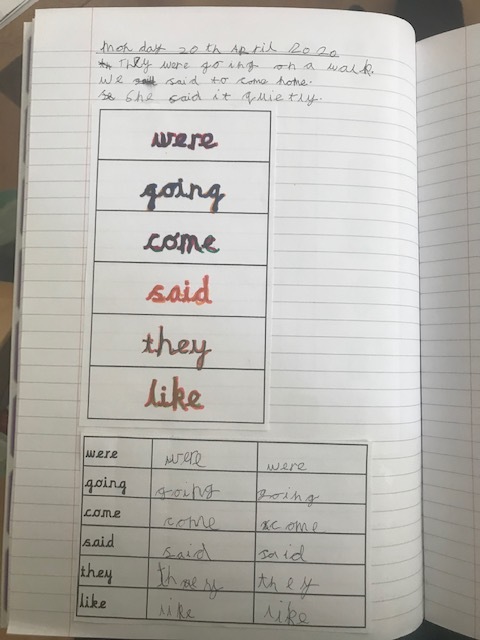 Monday 20th April 2020
They were going on a walk.
we said to come home.
She said it quietly.
were
going
come
said
they
like
were were were
going going going
come come come
said said said
they they they
like like like